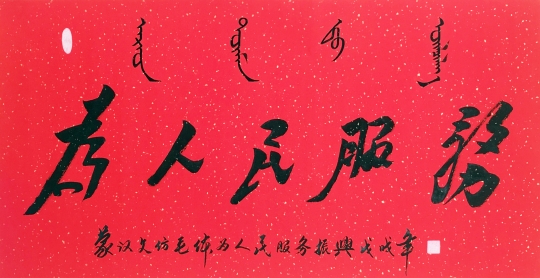 為人民服務
蒙汉文仿毛体为人民服务振興戊戌年